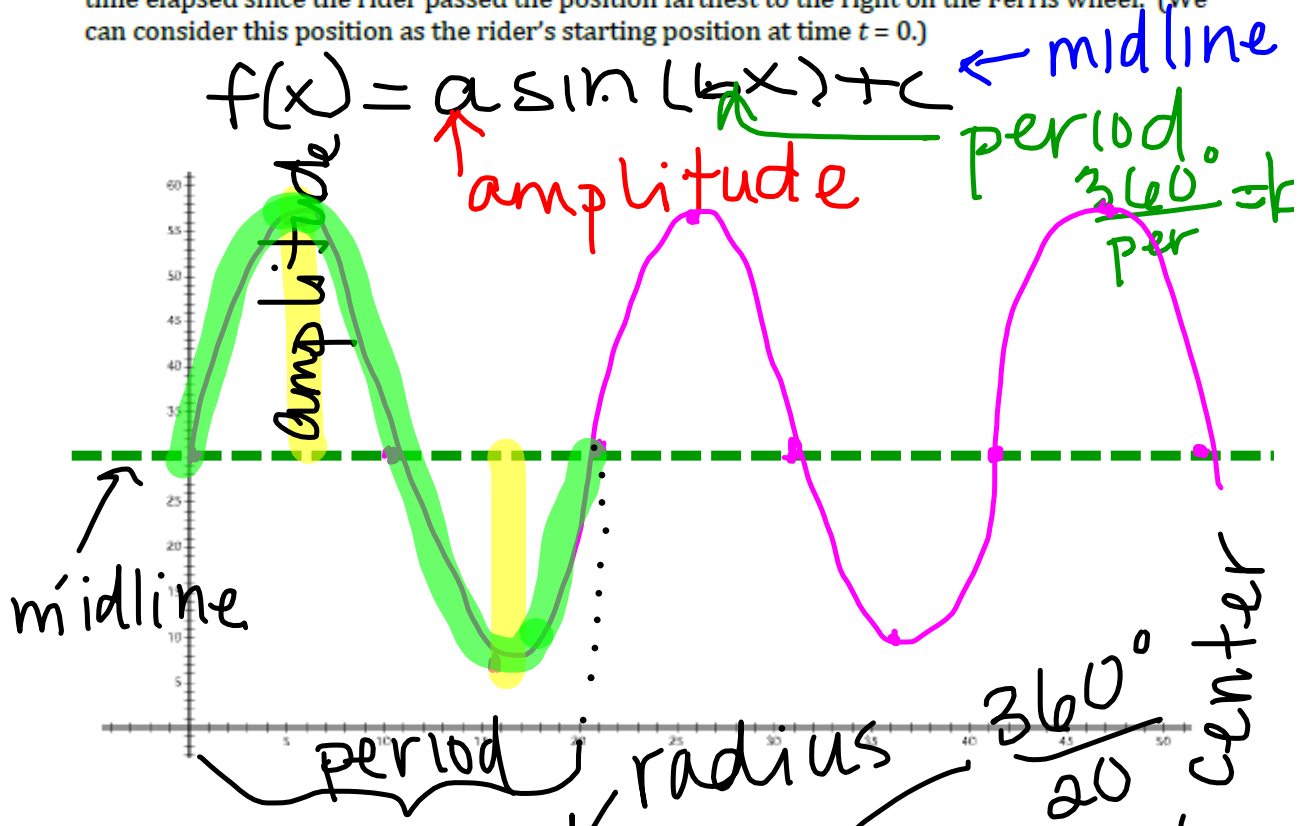 time elapsed since the rider passed the position farthest to the right on the Ferris wheel. (We
can consider this position as the rider's starting position at time t = 0.)
f(x) = a sin (bx) + c
← midline
period
amplitude
360° = b
per
amplitude
60
55
50
45
40
35
25
20
15
10
5
midline
5
10
15
20
25
30
35
40
45
50
period
radius
360°
20
center